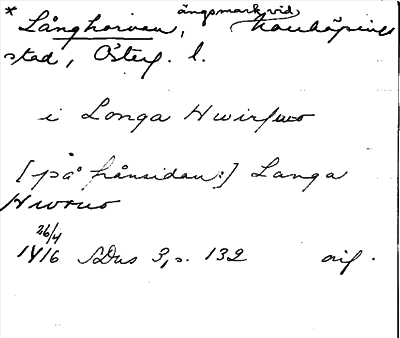 * Långhorvan, ängsmark vid Norrköpings
stad, Österg. l.
i Longa Hwirfwo
[på frånsidan:] Langa
Hworuo
26/4
1416 SDns 3, s. 132 orig.